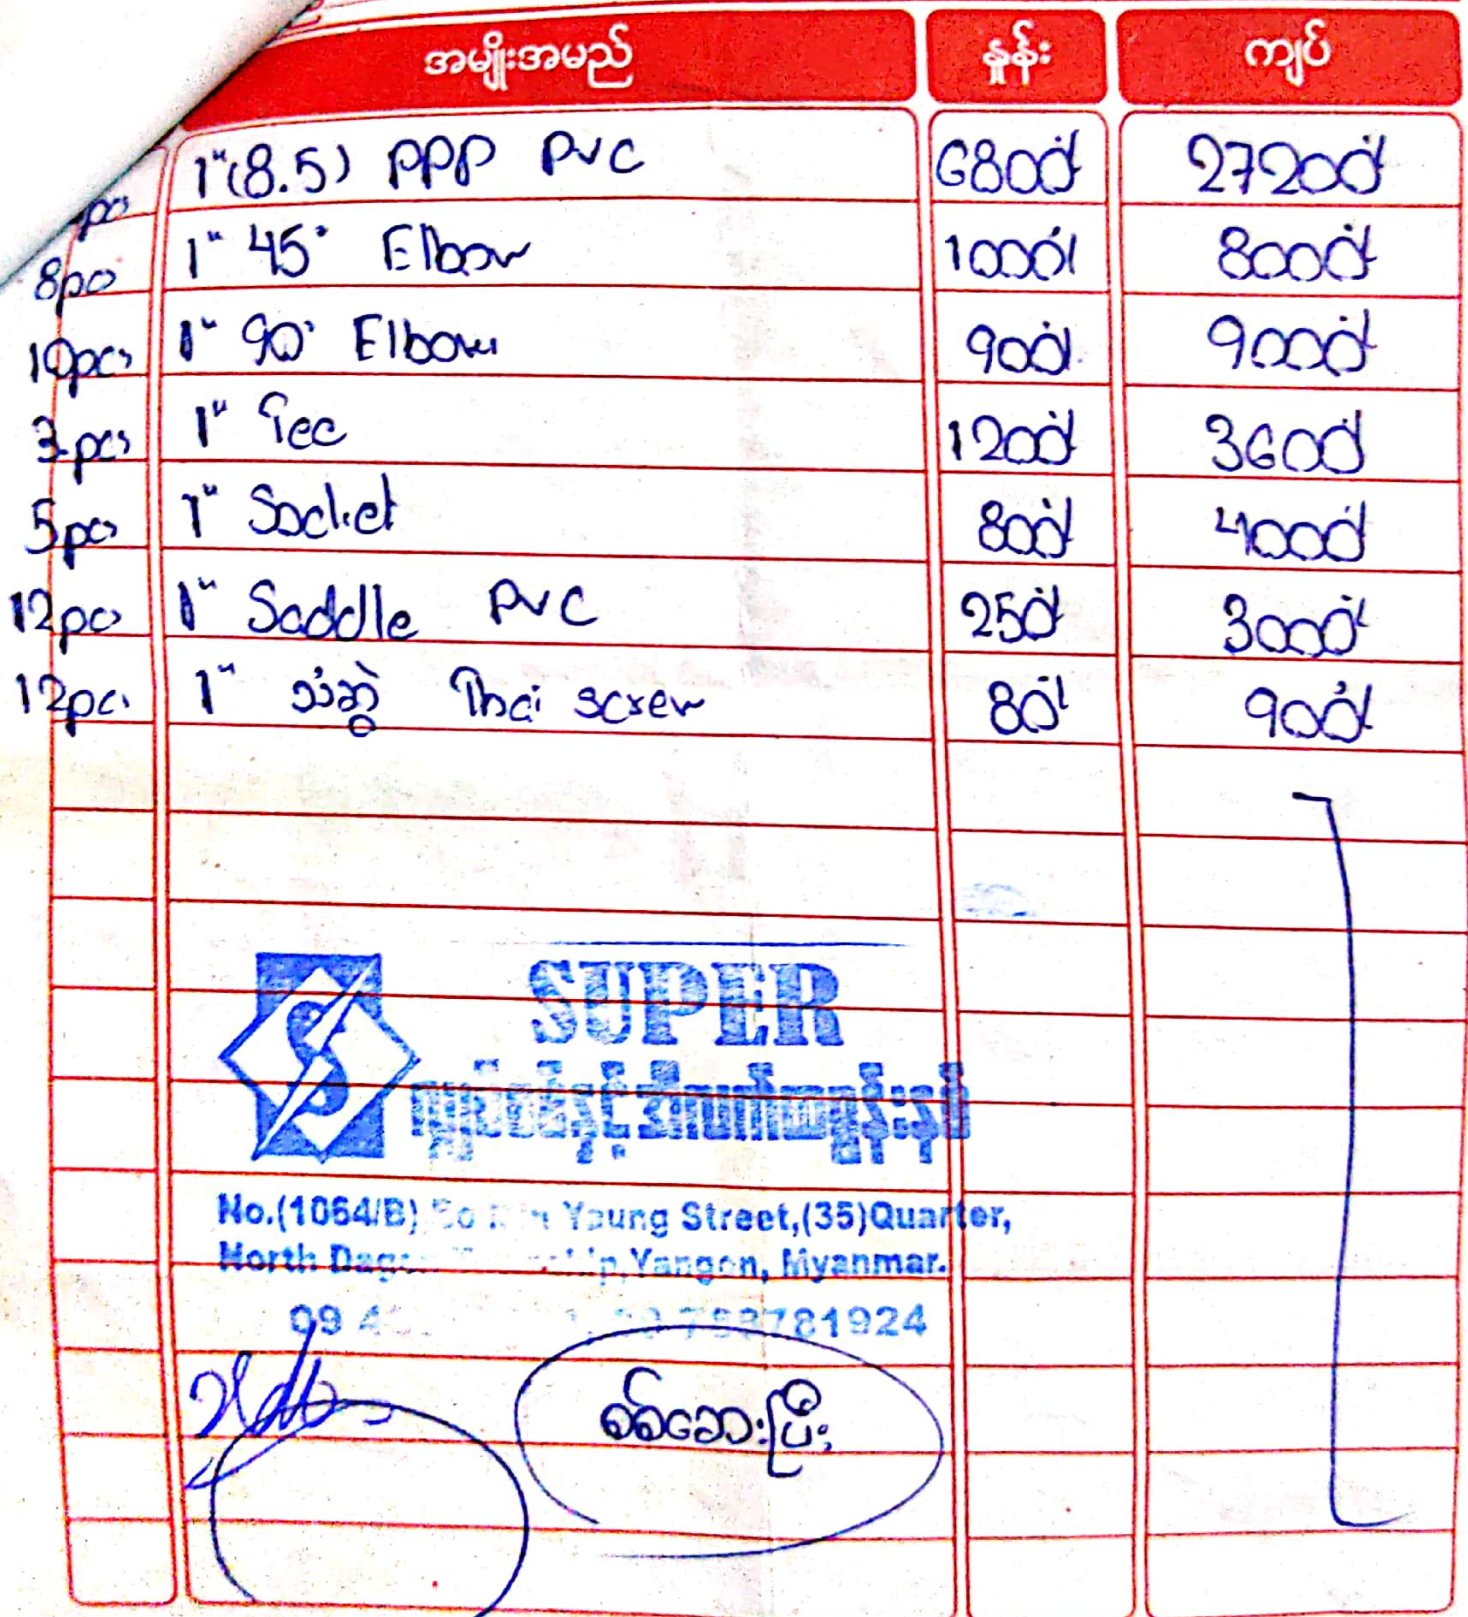 အမျိုးအမည် နှုန်း ကျပ်
1"(8.5) PPP PVC 6800/ 27200/
8pcs 1" 45° Elbow 1000/ 8000/
10pcs 1" 90° Elbow 900/ 9000/
3pcs 1" Tee 1200/ 3600/
5pcs 1" Socket 800/ 4000/
12pcs 1" Saddle PVC 250/ 3000/
12pcs 1" သံဆွဲ Thai screw 80/ 900/
SUPER
No.(1064/B) Young Street,(35)Quarter,
North Yangon, Myanmar.
781924
စစ်ဆေးပြီး